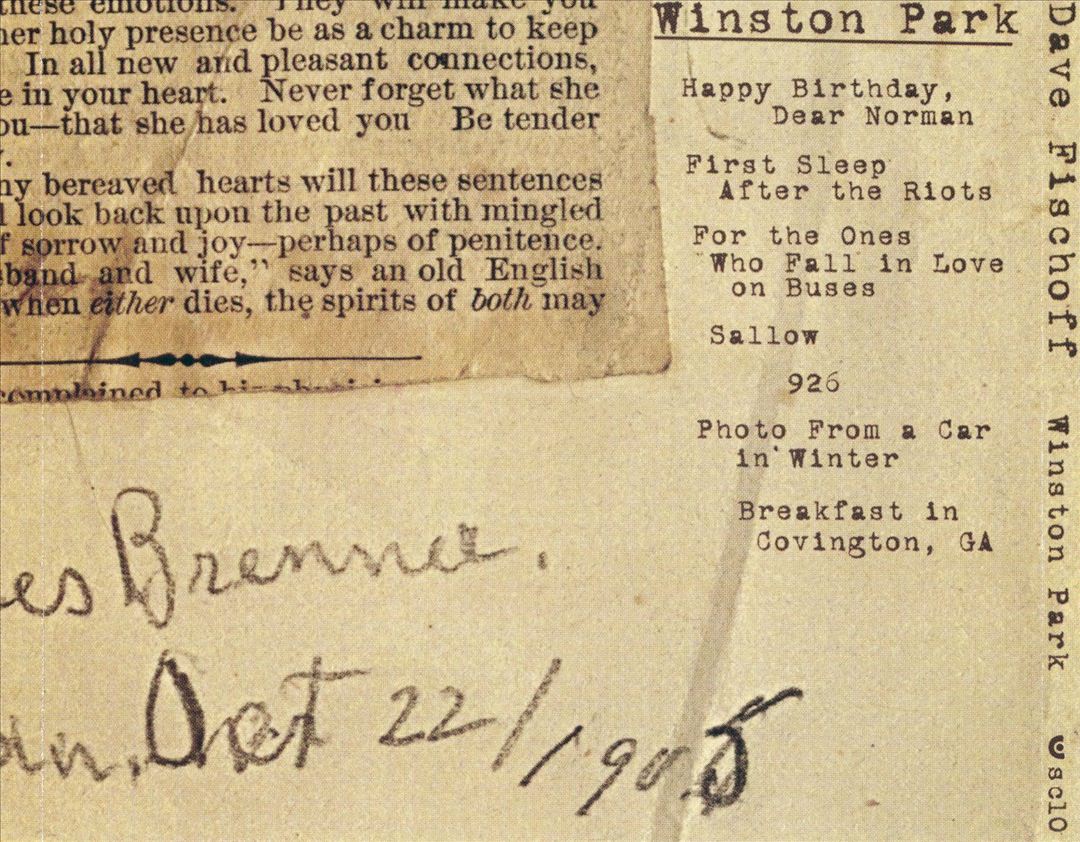 these emotions. They will make you
her holy presence be as a charm to keep
In all new and pleasant connections,
e in your heart. Never forget what she
ou—that she has loved you Be tender
y.
ny bereaved hearts will these sentences
l look back upon the past with mingled
f sorrow and joy—perhaps of penitence.
sband and wife,” says an old English
when either dies, the spirits of both may
complained to his
es Brennee.
an, Oct 22/1905
Winston Park
Happy Birthday,
Dear Norman
First Sleep
After the Riots
For the Ones
Who Fall in Love
on Buses
Sallow
926
Photo From a Car
in Winter
Breakfast in
Covington, GA
Dave Fischoff Winston Park sc10